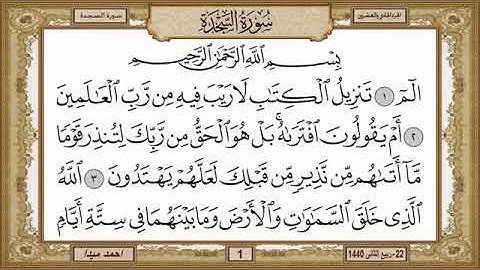 سورة السجدة
سُورَةُ السَّجْدَةِ
الجزء الحادي والعشرين
بِسْمِ اللَّهِ الرَّحْمَٰنِ الرَّحِيمِ
الٓمٓ ١ تَنزِيلُ ٱلْكِتَٰبِ لَا رَيْبَ فِيهِ مِن رَّبِّ ٱلْعَٰلَمِينَ
٢ أَمْ يَقُولُونَ ٱفْتَرَىٰهُ ۚ بَلْ هُوَ ٱلْحَقُّ مِن رَّبِّكَ لِتُنذِرَ قَوْمًا
مَّآ أَتَىٰهُم مِّن نَّذِيرٍ مِّن قَبْلِكَ لَعَلَّهُمْ يَهْتَدُونَ ٣ ٱللَّهُ
ٱلَّذِى خَلَقَ ٱلسَّمَٰوَٰتِ وَٱلْأَرْضَ وَمَا بَيْنَهُمَا فِى سِتَّةِ أَيَّامٍ
22- ربيع الثاني 1440
1
احمد ميدا